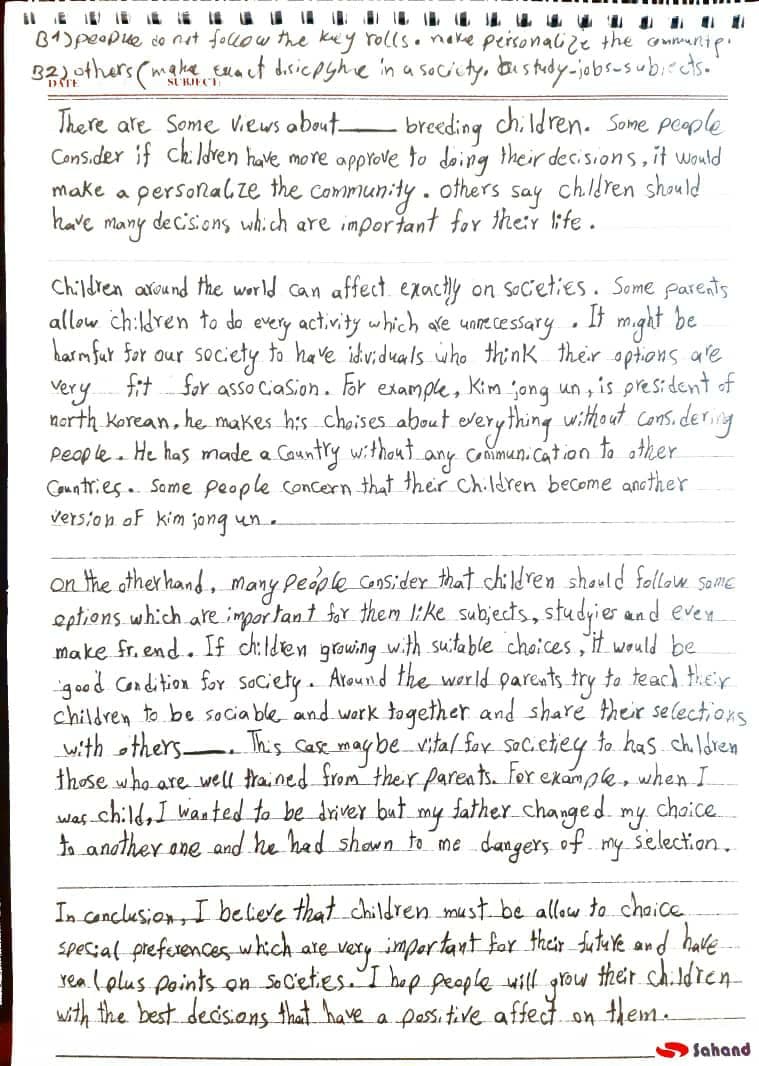 B1) people do not follow the key rolls. make personalize the community.
B2) others (make exact disicplyne in a society. study-jobs-subjects.
DATE SUBJECT:
There are some views about breeding children. Some people
Consider if children have more approve to doing their decisions, it would
make a personalize the community. others say children should
have many decisions which are important for their life.
Children around the world can affect exactly on societies. Some parents
allow children to do every activity which are unnecessary. It might be
harmfur for our society to have idividuals who think their options are
very fit for associasion. For example, Kim jong un, is president of
north Korean, he makes his choises about everything without considering
people. He has made a country without any communication to other
countries. Some people concern that their children become another
version of kim jong un.
on the otherhand, many people consider that children should follow some
options which are important for them like subjects, studyies and even
make friend. If children growing with suitable choices, it would be
good condition for society. Around the world parents try to teach their
children to be sociable and work together and share their selections
with others. This case maybe vital for societiey to has children
those who are well trained from their parents. For example, when I
was child, I wanted to be driver but my father changed my choice
to another one and he had shown to me dangers of my selection.
In conclusion, I believe that children must be allow to choice
special preferences which are very important for their future and have
real plus points on societies. I hop people will grow their children
with the best decisions that have a possitive affect on them.
Sahand